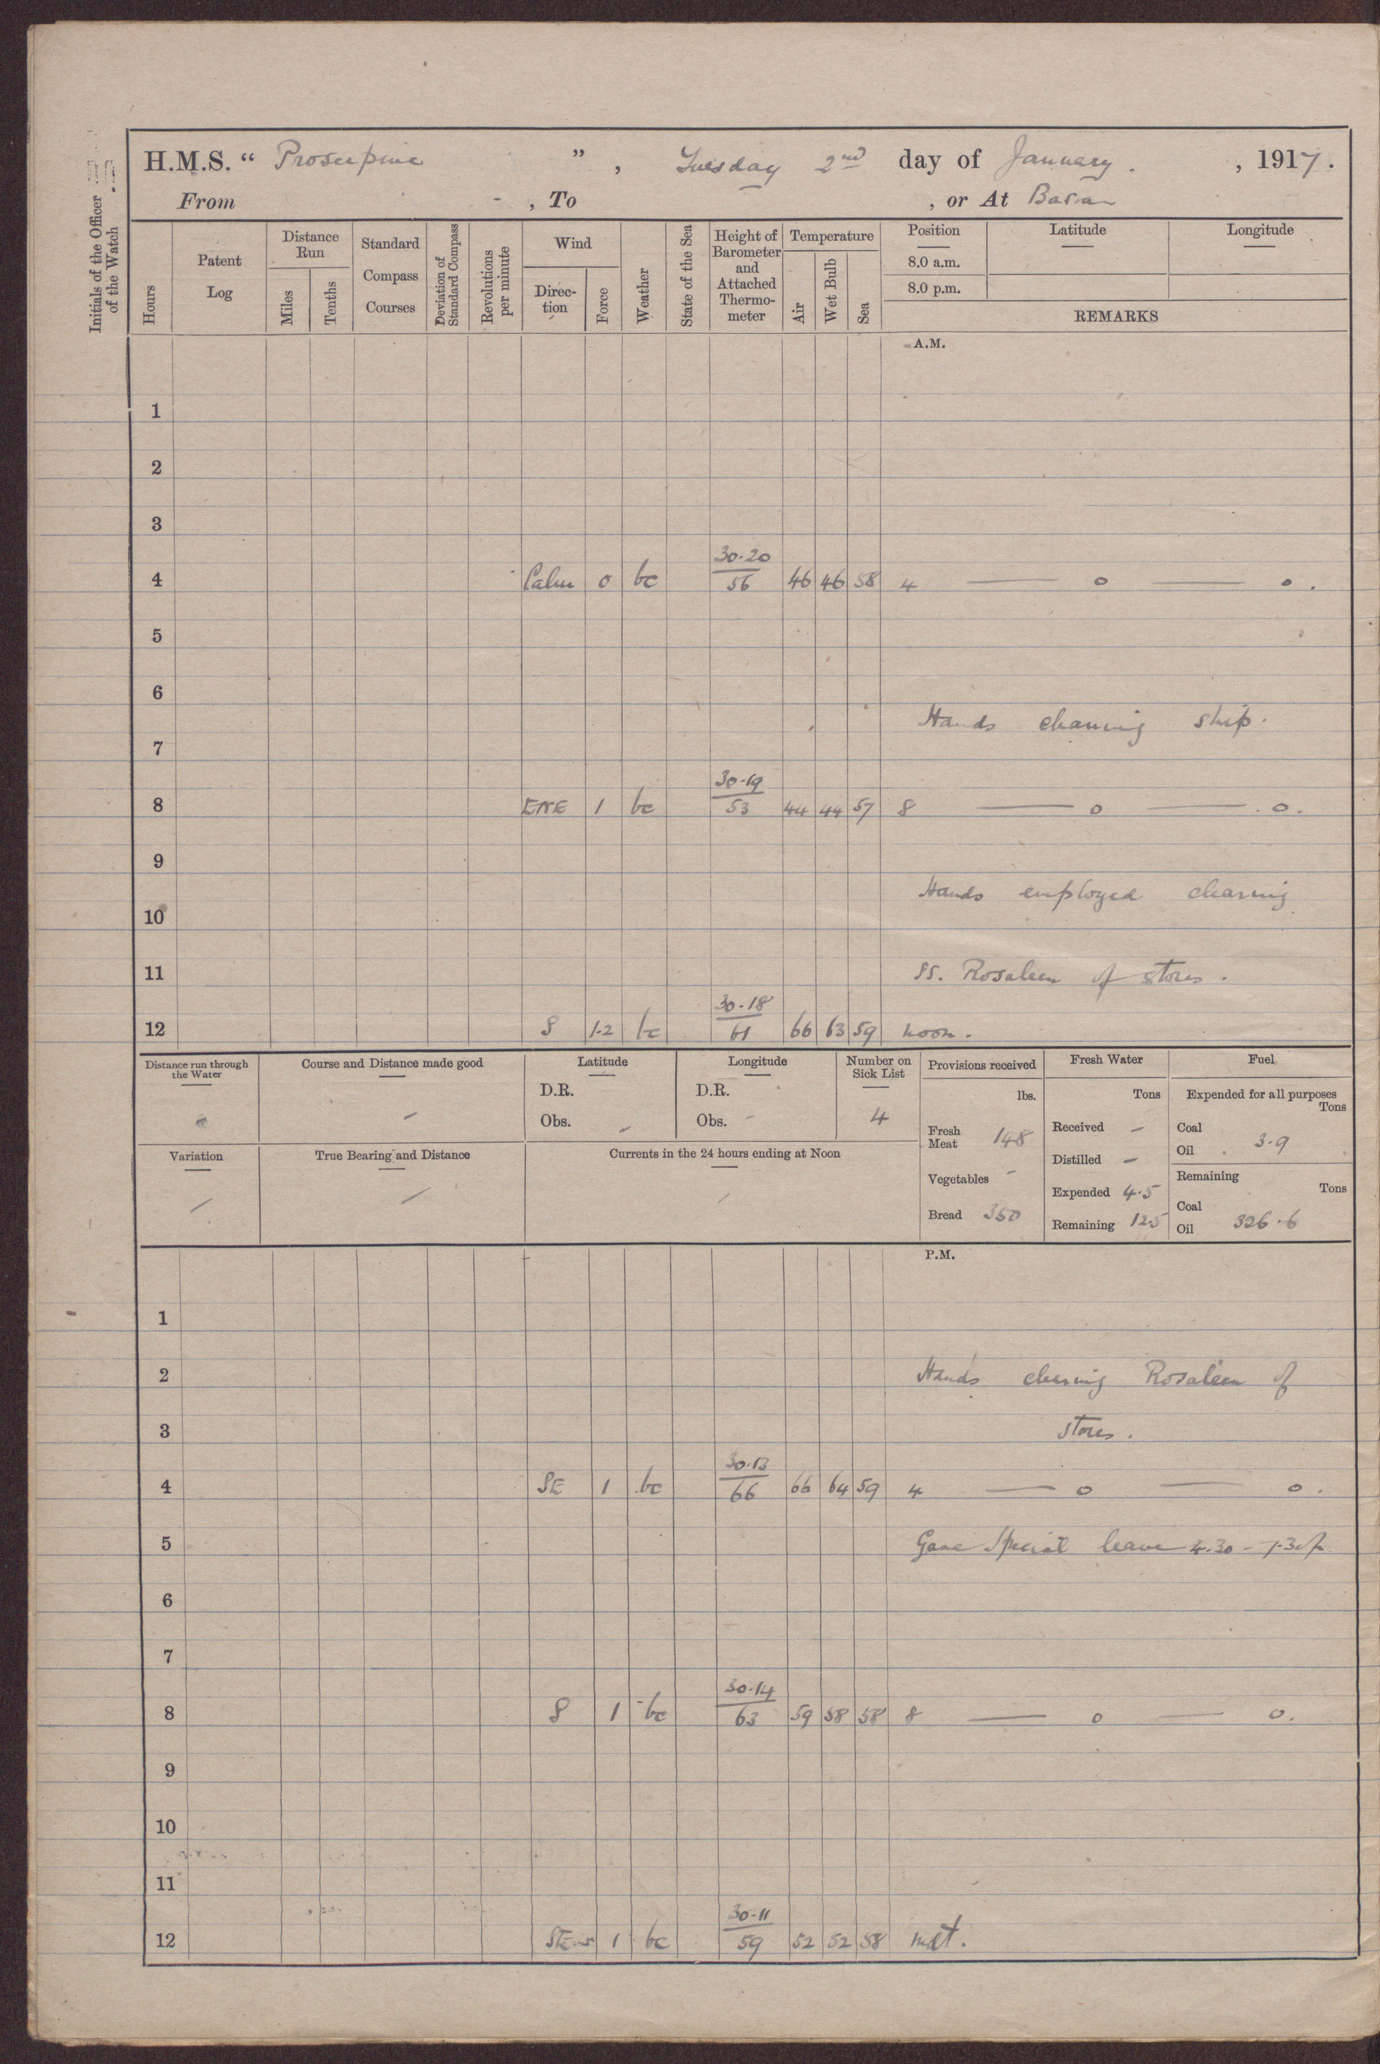 H.M.S. “ Proserpine ” , Tuesday 2nd day of January , 1917.
From - , To , or At Basra
Initials of the Officer of the Watch
Hours
Patent Log
Distance Run
Miles
Tenths
Standard Compass Courses
Deviation of Standard Compass
Revolutions per minute
Wind
Direction
Force
Weather
State of the Sea
Height of Barometer and Attached Thermometer
Temperature
Air
Wet Bulb
Sea
Position
8.0 a.m.
8.0 p.m.
Latitude
Longitude
REMARKS
A.M.
1
2
3
30.20
4 Calm 0 bc 56 46 46 58 4 — o — o.
5
6
Hands cleaning ship.
7
30.19
8 ENE 1 bc 53 44 44 57 8 — o — o.
9
Hands employed clearing
10
11 SS. Rosaleen of stores.
30.18
12 S 1-2 bc 61 66 63 59 noon.
Distance run through the Water
-
Course and Distance made good
-
Latitude
D.R.
Obs. -
Longitude
D.R.
Obs. -
Number on Sick List
4
Provisions received
lbs.
Fresh Meat 148
Vegetables -
Bread 350
Fresh Water
Tons
Received -
Distilled -
Expended 4.5
Remaining 125
Fuel
Expended for all purposes
Tons
Coal
Oil 3.9
Remaining
Tons
Coal
Oil 326.6
Variation
/
True Bearing and Distance
/
Currents in the 24 hours ending at Noon
/
P.M.
1
2 Hands clearing Rosaleen of
3 stores.
30.13
4 SE 1 bc 66 66 64 59 4 — o — o.
5 Gave Special leave 4.30 - 7.30p
6
7
30.14
8 S 1 bc 63 59 58 58 8 — o — o.
9
10
11
30.11
12 1 bc 59 52 52 58 mdt.